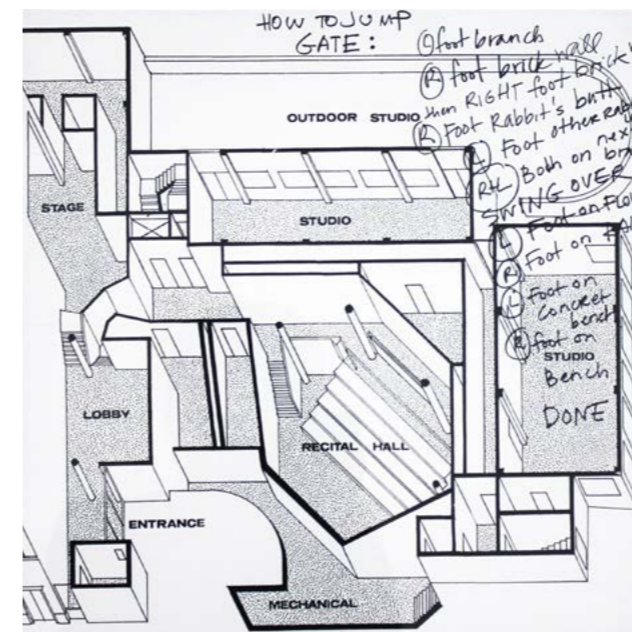 HOW TO JUMP
GATE:
① foot branch
Ⓡ foot brick wall
then RIGHT foot brick
Ⓡ Foot Rabbit's butt
Ⓛ Foot other
R+L Both on next
SWING OVER
Ⓛ Foot on
Ⓡ Foot on
Ⓛ Foot on
concret
bench
Ⓡ foot on
Bench
DONE
OUTDOOR STUDIO
STAGE
STUDIO
STUDIO
LOBBY
RECITAL HALL
ENTRANCE
MECHANICAL